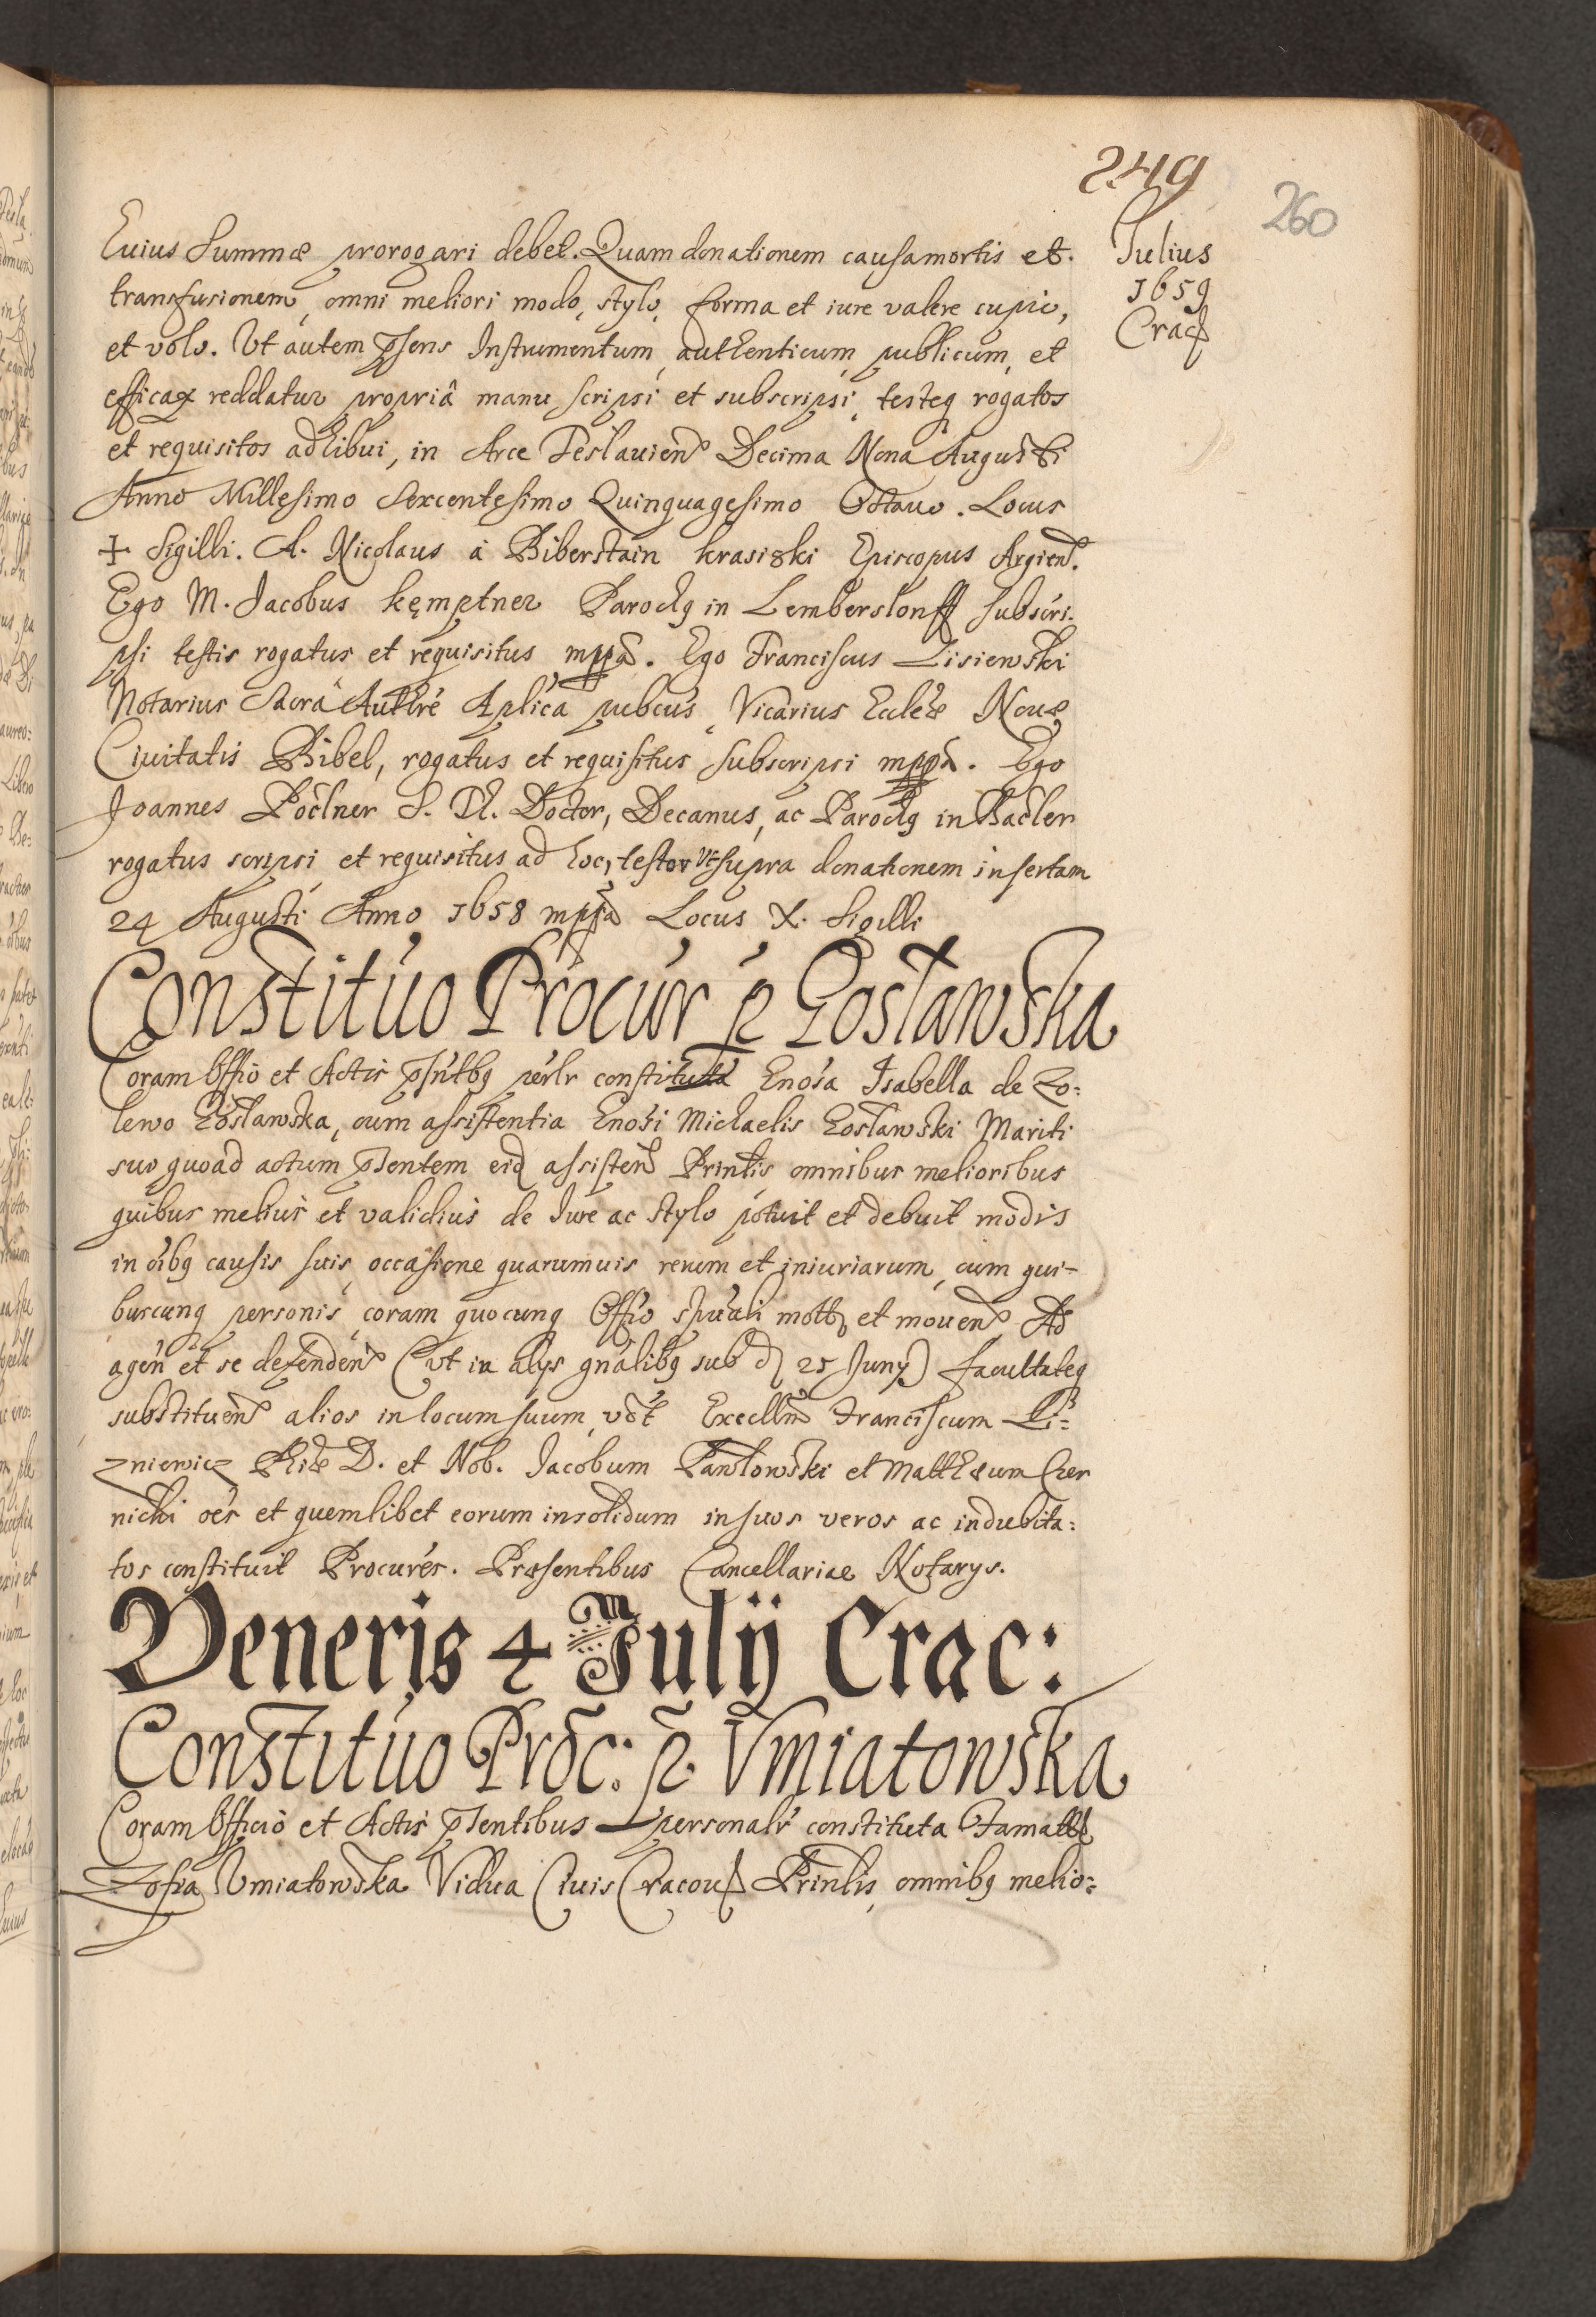 249
260
Julius
1659
Crac
huius Summæ prorogari debet. Quam donationem causa mortis et
transfusionem, omni meliori modo, stylo, forma et iure valere cupio,
et volo. Ut autem pñsens Instrumentum, authenticum, publicum, et
efficax reddatur propriâ manu scripsi et subscripsi, testesq rogatos
et requisitos adhibui, in Arce Teslauien Decima Nona Augusti
Anno Millesimo Sexcentesimo Quinquagesimo Octauo. Locus
+ Sigilli. A. Nicolaus à Biberstain Krasiski Episcopus Argien.
Ego M. Jacobus Kęmptner Parochg in Lemberstonff subscri-
psi testis rogatus et requisitus mppa. Ego Franciscus Lisiewski
Notarius Sacrâ Authre Aplica pubcus, Vicarius Eccleæ Nouæ
Ciuitatis Bibel, rogatus et requisitus subscripsi mppa. Ego
Joannes Pöchner S. Th. Doctor, Decanus, ac Parochg in
rogatus scripsi et requisitus ad hoc, testor ut supra donationem insertam
24 Augusti Anno 1658 mppa Locus X. Sigilli
Constituo Procur p Gosławska
Coram Offio et Actis pñtbg perlr constituta Gnosa Isabella de Zo:
lewo Gosławska, cum assistentia Gnosi Michaelis Gosławski Mariti
suo quoad actum pñsentem eid assisten Printis omnibus melioribus
quibus melius et validius de Iure ac Stylo potuit et debuit modis
in oibg causis suis, occasione quarumuis rerum et iniuriarum, cum qui-
buscunq personis, coram quocunq Offio spuali mot et mouen Ad
agen et se defenden (ut in alys gnalibg sub d 25 Juny) facultateq
substituen alios in locum suum, vdt Excellm Franciscum Li:
zniewicz Phiæ D. et Nob. Jacobum Pawłowski et Matthæum Czer
nicki oes et quemlibet eorum insolidum in suos veros ac indubita:
tos constituit Procures. Præsentibus Cancellariæ Notarys.
Veneris 4 Julij Crac:
Constituo Proc: p. Vmiatowska
Coram Officio et Actis pñsentibus personalr constituta Famat
Zofia Vmiatowska Vidua Ciuis Cracou Printis omnibg melio: